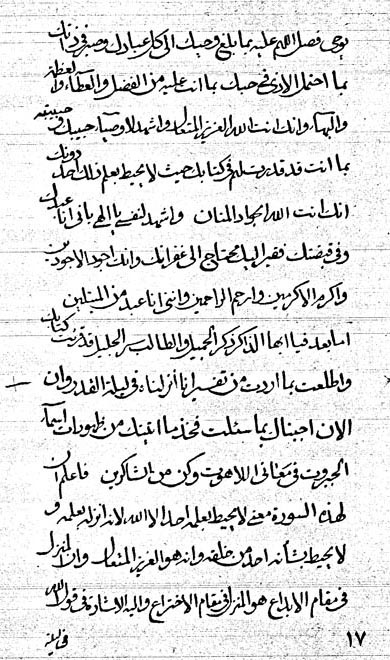 يوحي فصل اللهم عليه بما بلغ وحيك الى كل عبادك وصبر في ذلك
بما احتمل الاذى في حبك بما انت عليه من الفضل والعطاء والعظمة
والبهاء وانك انت الله العزيز المتعال واشهد لاوصياء حبيبك
بما انت قد قدرت لهم في كتابك حيث لا يحيط بعلم ذلك احد دونك
انك انت الله الجواد المنان واشهد لنفسي يا الهي باني انا عبدك
وفي قبضتك فقير اليك محتاج الى غفرانك وانك اجود الاجودين
واكرم الاكرمين وارحم الراحمين وانني انا عبد من المبتلين
اما بعد فيا ايها الذاكر ذكر الجميل والطالب سر الجليل قد قرئت كتابك
واطلعت بما اردت من تفسير انا أنزلناه في ليلة القدر وان
الان اجبناك بما سئلت فخذ ما اتيتك من ظهورات اسماء
الجبروت في معاني اللاهوت وكن من الشاكرين فاعلم ان
لهذه السورة معنى لا يحيط بعلمه احد الا الله لانه انزله بعلمه و
لا يحيط بشأنه احد من خلقه وانه هو العزيز المتعال وان المنزل
في مقام الابداع هو المنزل في مقام الاختراع واليه الاشارة في قول الله
في ليلة
١٧